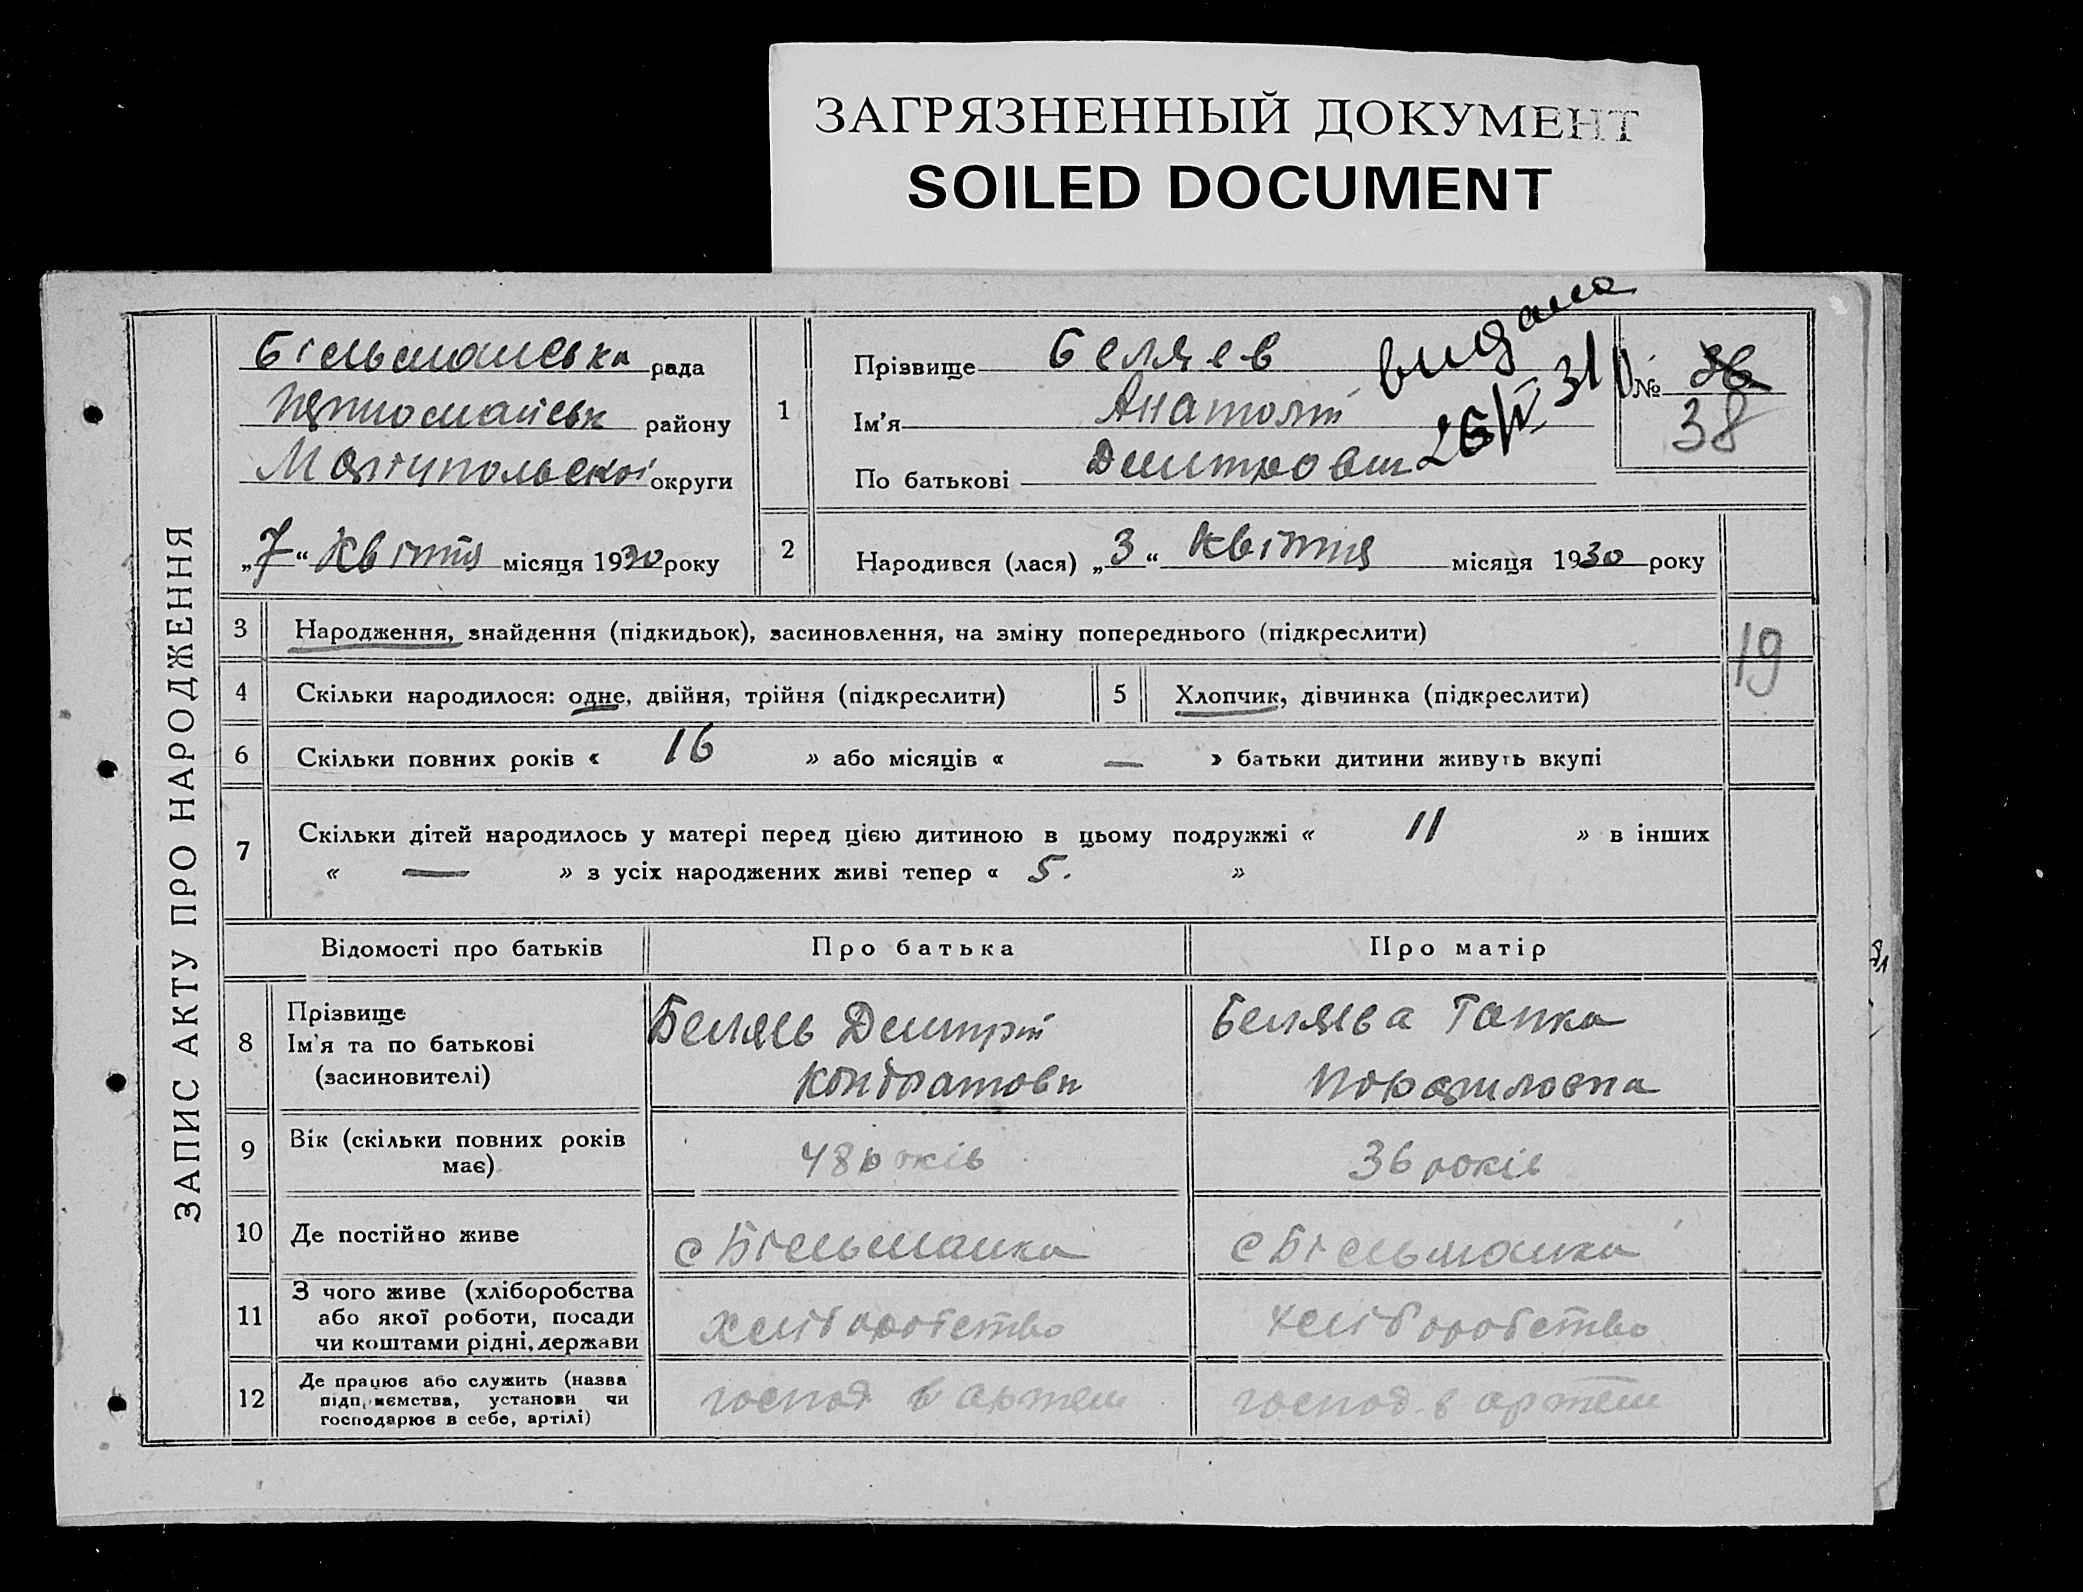 ЗАГРЯЗНЕННЫЙ ДОКУМЕНТ
SOILED DOCUMENT
ЗАПИС АКТУ ПРО НАРОДЖЕННЯ
Більманська рада
району
Маріупольської округи
„7“ Квітня місяця 1930 року
1
Прізвище Беляев
Ім'я Анатолій
По батькові Дмитрович
видана
26/IV 31
№ 36
38
2 Народився (лася) „3“ Квітня місяця 1930 року
3 Народження, знайдення (підкидьок), засиновлення, на зміну попереднього (підкреслити)
19
4 Скільки народилося: одне, двійня, трійня (підкреслити) 5 Хлопчик, дівчинка (підкреслити)
6 Скільки повних років « 16 » або місяців « — » батьки дитини живуть вкупі
7 Скільки дітей народилось у матері перед цією дитиною в цьому подружжі « 11 » в інших
« — » з усіх народжених живі тепер « 5. »
Відомості про батьків Про батька Про матір
8 Прізвище
Ім'я та по батькові
(засиновителі)
Беляев Дмитрій
Кондратови
Беляева Гапка
9 Вік (скільки повних років
має)
48 років
36 років
10 Де постійно живе с Більманка с Більманка
11 З чого живе (хліборобства
або якої роботи, посади
чи коштами рідні, держави
хліборобство
хліборобство
12 Де працює або служить (назва
підприємства, установи чи
господарює в себе, артілі)
господ в артели
господ в артели